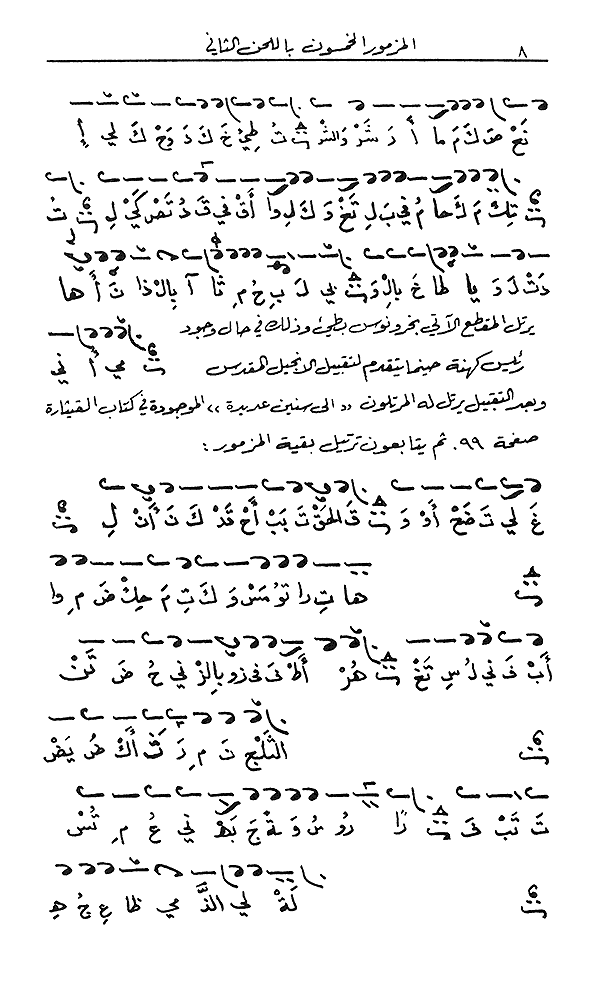 ٨ المزمور الخمسون باللحن الثاني
نَعْ صَ كَ مَ ما أَ دَ شَرْ وَالشْ تُ طِيْ خَ كَ دَ وَحْ كَ لي إِ
تِكَ مَ كَ حا مُ في بَ لِ تَغْ وَ كَ لِ وا أَقْ في قَ دُ تَصْ كَيْ لِ تُ
دَتْ لَ وَ يا طا خَ بِالِ وَ ني لَ بِ حُ مِ ثا آ بِالْ ذا نَ أَ ها
يرتل المقطع الآتي بخرونوس بطيئ وذلك في حال وجود
رئيس كهنة حينما يتقدم لتقبيل الانجيل المقدس مي أُ ني
وبعد التقبيل يرتل له المرتلون «الى سنين عديدة» الموجودة في كتاب القيثارة
صفحة ٩٩. ثم يتابعون ترتيل بقية المزمور:
غَ لي تَ ضَحْ أَوْ وَ قَ الحَقْ تَ بَبْ أَحْ قَدْ كَ نَ أَنْ لِ
ها تِ را تو مَسْ وَ كَ تِ مَ حِكْ ضَ مِ وا
أَبْ فَ ني لُ سِ تَغْ هُرْ أَطْ فَ فى زو بِالزْ ني حُ ضَ تَنْ
الثَلْجِ نَ مِ رَ ثَ أَكْ ضُ يَضْ
تَ تَبْ فَ رًا رُو سُ وَ ةً جَ بَهْ ني عُ مِ تُسْ
لَةْ لي الذَّ مي ظا عِ جُ هِ